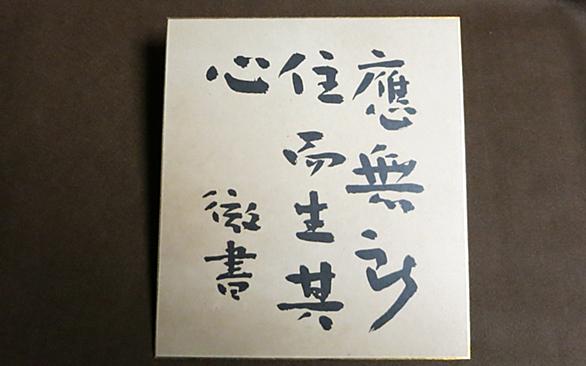 應無所
住而生其
心
徹書